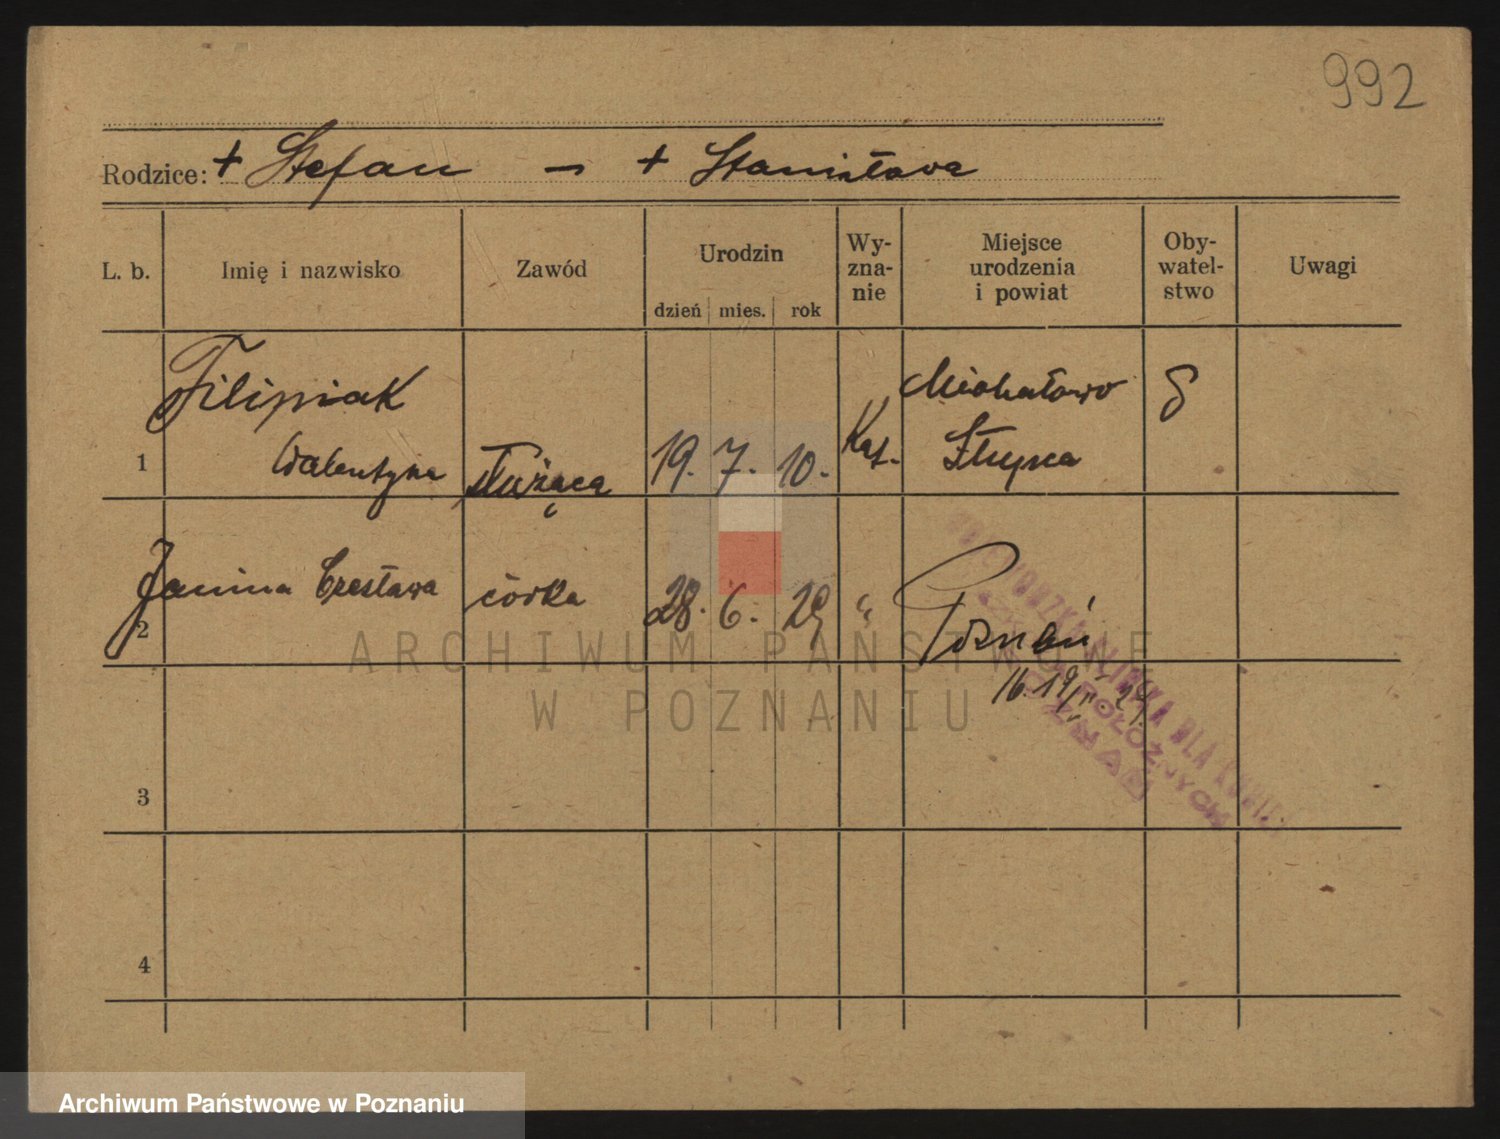 992
Rodzice: + Stefan — + Stanisława
L. b. Imię i nazwisko Zawód Urodzin Wy- Miejsce Oby- Uwagi
zna- urodzenia watel-
nie i powiat stwo
dzień mies. rok
Filipiak Michałowo
1 Walentyna służąca 19. 7. 10. Kat. Słupca
2 Janina Czesława córka 28. 6. 29 " Poznań
3
4
DLA KOBIET
POŁOŻNYCH
ARCHIWUM PAŃSTWOWE
W POZNANIU
Archiwum Państwowe w Poznaniu